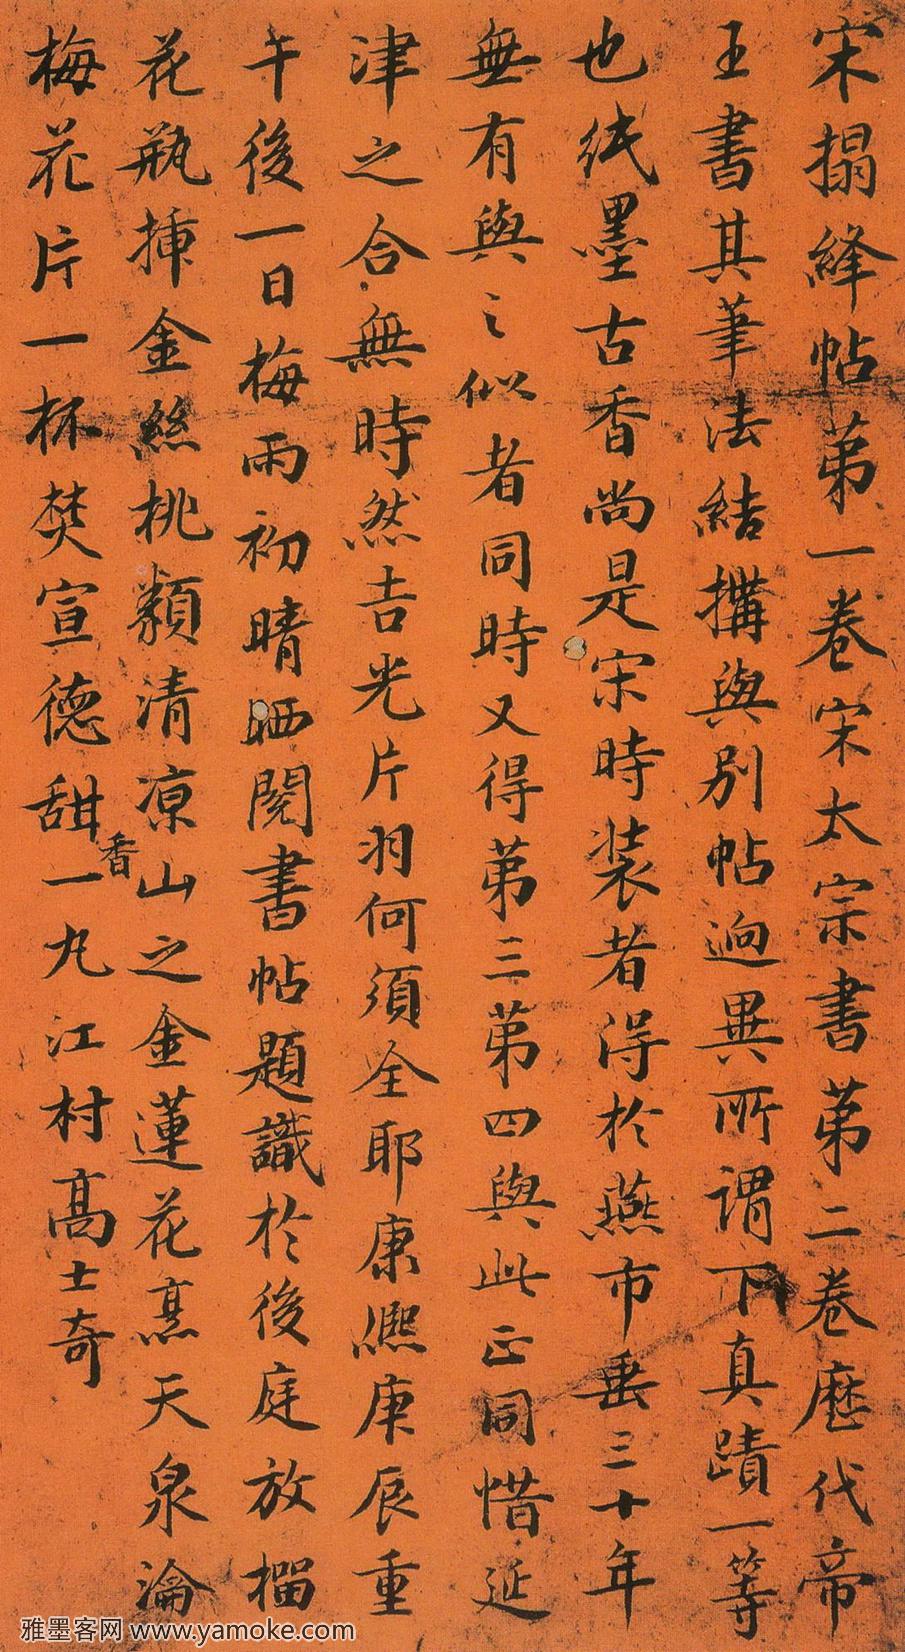 宋搨絳帖第一卷宋太宗書第二卷歷代帝
王書其筆法結搆與別帖逈異所謂下真蹟一等
也紙墨古香尚是宋時装者得於燕市垂三十年
無有與之似者同時又得第三第四與此正同惜延
津之合無時然吉光片羽何須全耶康熈庚辰重
午後一日梅雨初晴晒閱書帖題識於後庭放榴
花瓶揷金絲桃纇清凉山之金蓮花烹天泉瀹
梅花片一杯焚宣德甜香一丸江村高士奇
雅墨客网 www.yamoke.com